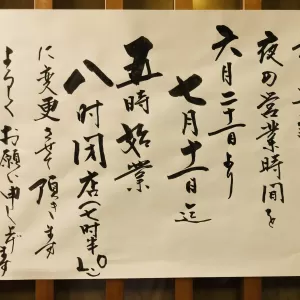 夜の営業時間を
六月二十一日より
七月十一日迄
五時始業
八时閉店(七时半L.O)
に変更させて頂きます
よろしくお願い申し上げます